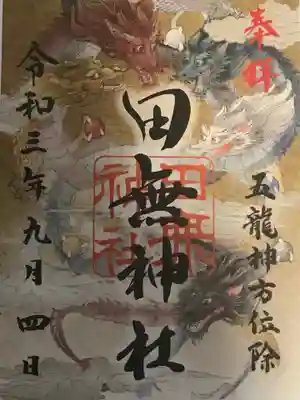 奉拝
五龍神方位除
田無神社
田無神社
令和三年九月四日